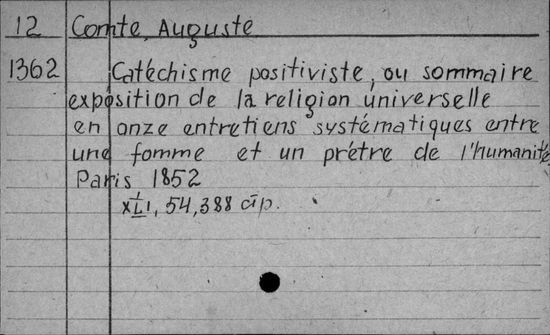 12 Comte, Auguste
1362 Catéchisme positiviste, ou sommaire
exposition de la religion universelle
en onze entretiens systématiques entre
une fomme et un prétre de l'humanité
Paris 1852
54, 388